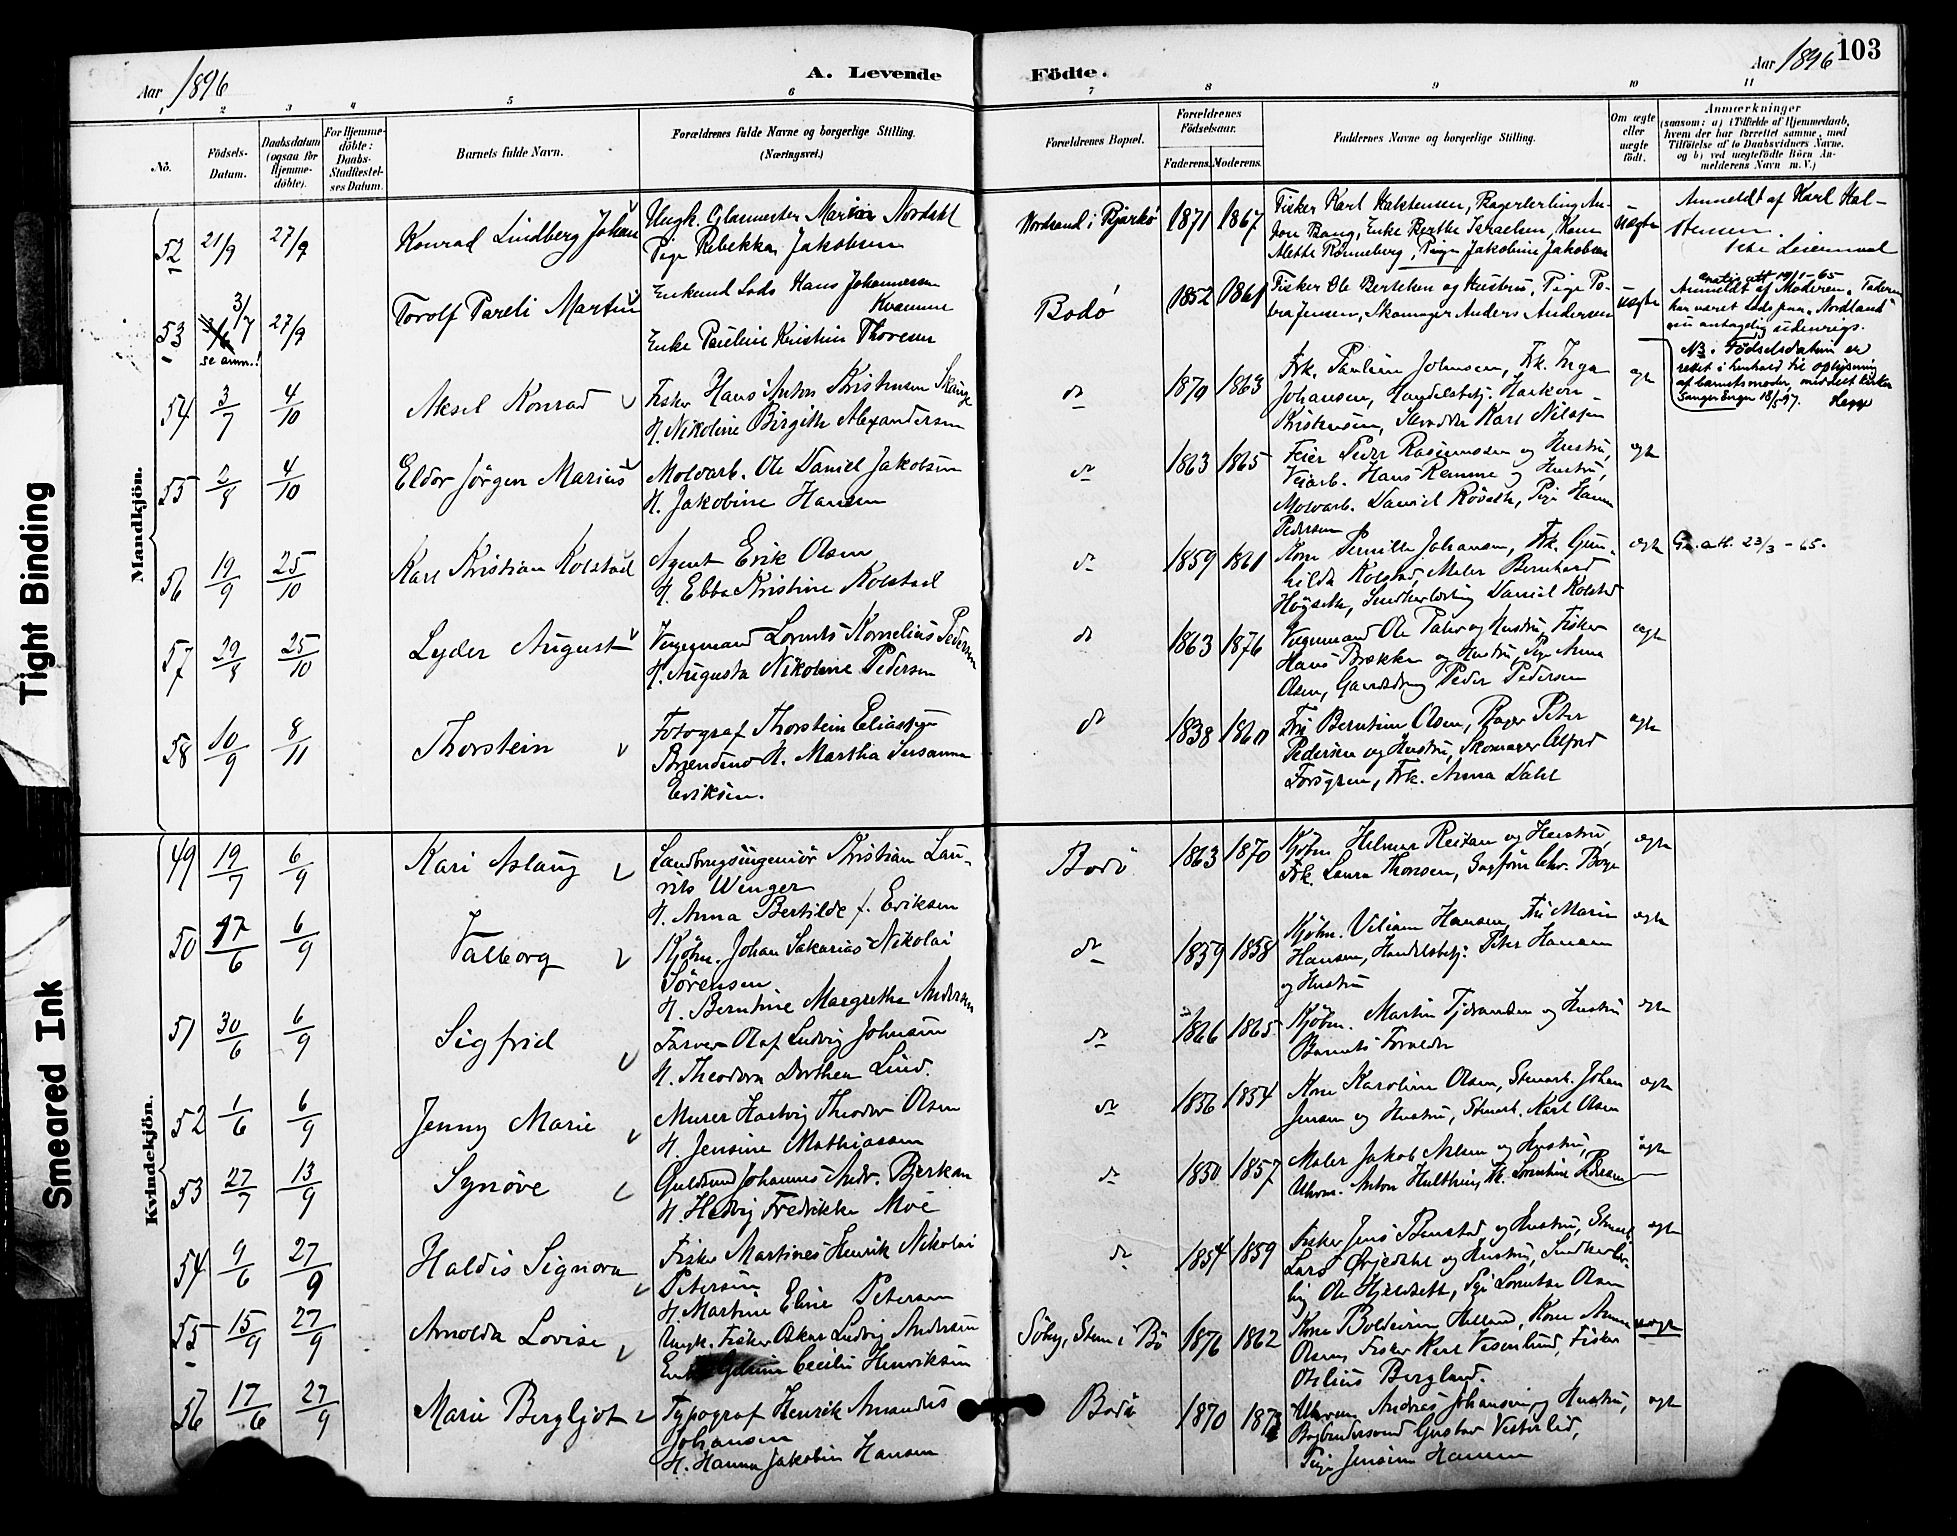 103
Aar 1896
A. Levende
Födte.
Aar 1896
1 2 3 4 5 6 7 8 9 10 11
No.
Födsels-
Datum.
Daabsdatum
(ogsaa for
Hjemme-
döbte).
For Hjemme-
döbte:
Daabs-
Stadfæstel-
ses Datum.
Barnets fulde Navn.
Forældrenes fulde Navne og borgerlige Stilling.
(Næringsvei.)
Forældrenes Bopæl.
Forældrenes
Födselsaar.
Faderens. Moderens.
Faddernes Navne og borgerlige Stilling.
Om ægte
eller
uægte
födt.
Anmærkninger
(saasom: a) i Tilfælde af Hjemmedaab,
hvem der har forrettet samme, med
Tilföielse af to Daabsvidners Navne,
og b) ved uægtefödte Börn An-
melderens Navn m. V.)
Mandkjön.
52 21/9 27/9 Konrad Lindberg Johan
Ungk. Glasmester Marius Nordahl
Pige Rebekka Jakobsen
1871 1867
Anmeldt af Karl Hal-
stensen.
53 3/7 27/9
se anm.!
Torolf Pareli Martin
Enkemd Lods Hans Johannesen
Kvamme
Enke Pauline Kristine Thoresen
Bodö 1852 1861
Fisker Ole Bertelsen og Hustru, Pige To-
Jensen, Skomager Anders Andersen
uægte
Anmeldt af Moderen. Faderen
har været Lods paa "Nordland"
nu antagelig udenrigs.
NB. Födselsdatum er
rettet i henhold til oplysning
af barnets moder, meddelt kirke
sanger Enger 18/5 97.
54 3/7 4/10 Aksel Konrad
Fisker Hans Anton Kristensen Skauge
H. Nikoline Birgithe Alexandersen
do 1870 1863
Frk. Pauline Johnsen, Frk. Inga
Johansen, Handelsbetj. Haakon
Kristensen, Karl Nilsen
ægte
55 2/8 4/10 Eldor Jörgen Marius
Moloarb. Ole Daniel Jakobsen
H. Jakobine Hansen
do 1863 1865
Feier Peder Rasmussen og Hustru,
Veiarb. Hans Remme og Hustru
Moloarb. Daniel Pige Hanna
Pedersen
ægte
56 19/9 25/10 Karl Kristian Kolstad
Agent Erik Olsen
H. Ebba Kristine Kolstad
do 1859 1861
Kone Pernille Johansen, Frk. Gun-
hilda Kolstad, Maler Bernhard
Högseth, Snedkerlærling Daniel Kolstad
ægte
att. 23/3 - 65.
57 29/8 25/10 Lyder August
Vognmand Lorents Kornelius Pedersen
H. Augusta Nikoline Pedersen
do 1863 1876
Vognmand Ole og Hustru, Fisker
Hans Brekke og Hustru, Pige Anna
Olsen, Gaardsdreng Peder Pedersen
ægte
58 10/9 8/11 Thorstein
Fotograf Thorstein Eliassen
H. Martha Susanna
Eriksen.
do 1838 1860
Fru Berntine Olsen, Bager Peter
Pedersen og Hustru, Skomager Alfred
Forsgren, Frk. Anna Dahl
ægte
Kvindekjön.
49 19/7 6/9 Kari Aslaug
Landbrugsingeniör Kristian Lau-
rits Wenger
H. Anna Bertilde f. Eriksen
Bodö 1863 1870
Kjöbm. Helmer og Hustru,
Frk. Laura Thonsen,
ægte
50 17/6 6/9 Valborg
Kjöbm. Johan Sakarias Nikolai
Sörensen
H. Berntine Margrethe Andersen
do 1859 1858
Kjöbm. Viliam Hansen, Fru Marie
Hansen, Handelsbetj: Peter Hansen
og Hustru
ægte
51 30/6 6/9 Sigfrid
Farver Olaf Ludvig Johnsen
H. Theodora Dorthea Lind.
do 1866 1865
Kjöbm. Martin og Hustru
Barnets Forældre
ægte
52 1/6 6/9 Jenny Marie
Murer Hartvig Theodor Olsen
H. Jensine Mathiassen
do 1856 1854
Kone Karoline Olsen, Stuearb. Johan
Jensen og Hustru, Stuearb. Karl Olsen
ægte
53 27/7 13/9 Synöve
Guldsmed Johannes Andr. Berksen
H. Hedvig Fredrikke Moe
do 1850 1857
Maler Jakob Nilsen og Hustru,
Uhrm. Anton Hulthing,
ægte
54 9/6 27/9 Haldis Signora
Fisker Martines Henrik Nikolai
Petersen
H. Martine Eline Petersen
do 1854 1859
Fisker Jens og Hustru,
Lars og Hustru, Snedkerlær-
ling Ole Pige Lorentse Olsen
ægte
55 15/9 27/9 Arnolda Lovise
Ungk. Fisker Oskar Ludvig Andersen
Cecilie Henriksen
1876 1862
Kone Kone Anna
Olsen, Fisker Karl Fisker
Otilius Bergland.
uægte
56 17/6 27/9 Marie Bergljot
Typograf Henrik Amandus
Johansen
H. Hanna Jakobine Hansen
Bodö 1870 1873
Uhrm. Andreas Johansen og Hustru,
Bogbindersvend Gustav Vesterlid,
Pige Jensine Hansen
ægte
Tight Binding
Smeared Ink